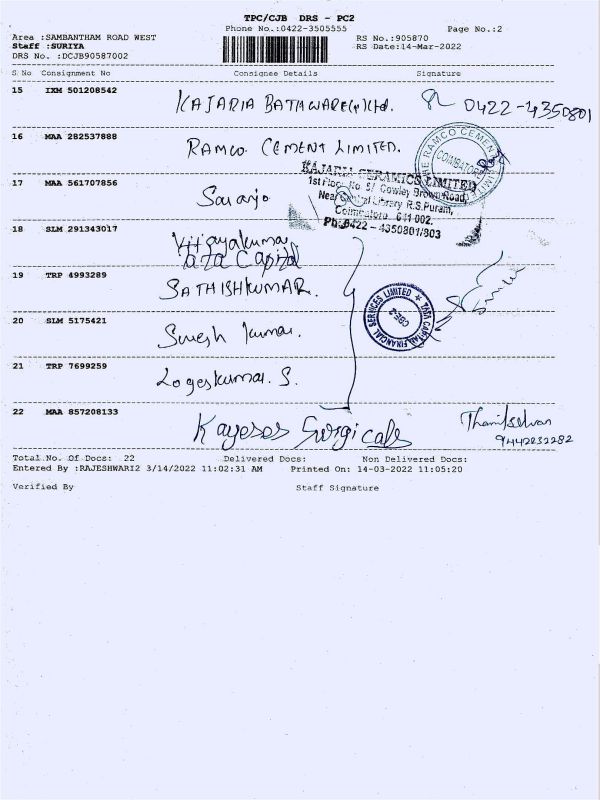 TPC/CJB DRS - PC2
Phone No.:0422-3505555 Page No.:2
Area :SAMBANTHAM ROAD WEST RS No.:905870
Staff :SURIYA RS Date:14-Mar-2022
DRS No. :DCJB90587002
S No Consignment No Consignee Details Signature
15 IXM 501208542 KAJARIA BATHWARE(P)Ltd. 0422-4350801
16 MAA 282537888 RAMCO CEMENT LIMITED.
THE RAMCO CEMENTS LIMITED
COIMBATORE
KAJARIA CERAMICS LIMITED
1st Floor, No. 5/ Cowley Brown Road,
Near Central Library R.S.Puram,
Coimbatore 641 002.
Ph:0422 - 4350801/803
17 MAA 561707856
18 SLM 291343017 Vijayakumar
tata Capital
19 TRP 4993289 SATHISHKUMAR.
TATA CAPITAL FINANCIAL SERVICES LIMITED
20 SLM 5175421 Suresh kumar.
21 TRP 7699259 Logeskumar. S.
22 MAA 857208133 Kayeses Surgicals Thamilselvan
9442232282
Total No. Of Docs: 22 Delivered Docs: Non Delivered Docs:
Entered By :RAJESHWARI2 3/14/2022 11:02:31 AM Printed On: 14-03-2022 11:05:20
Verified By Staff Signature